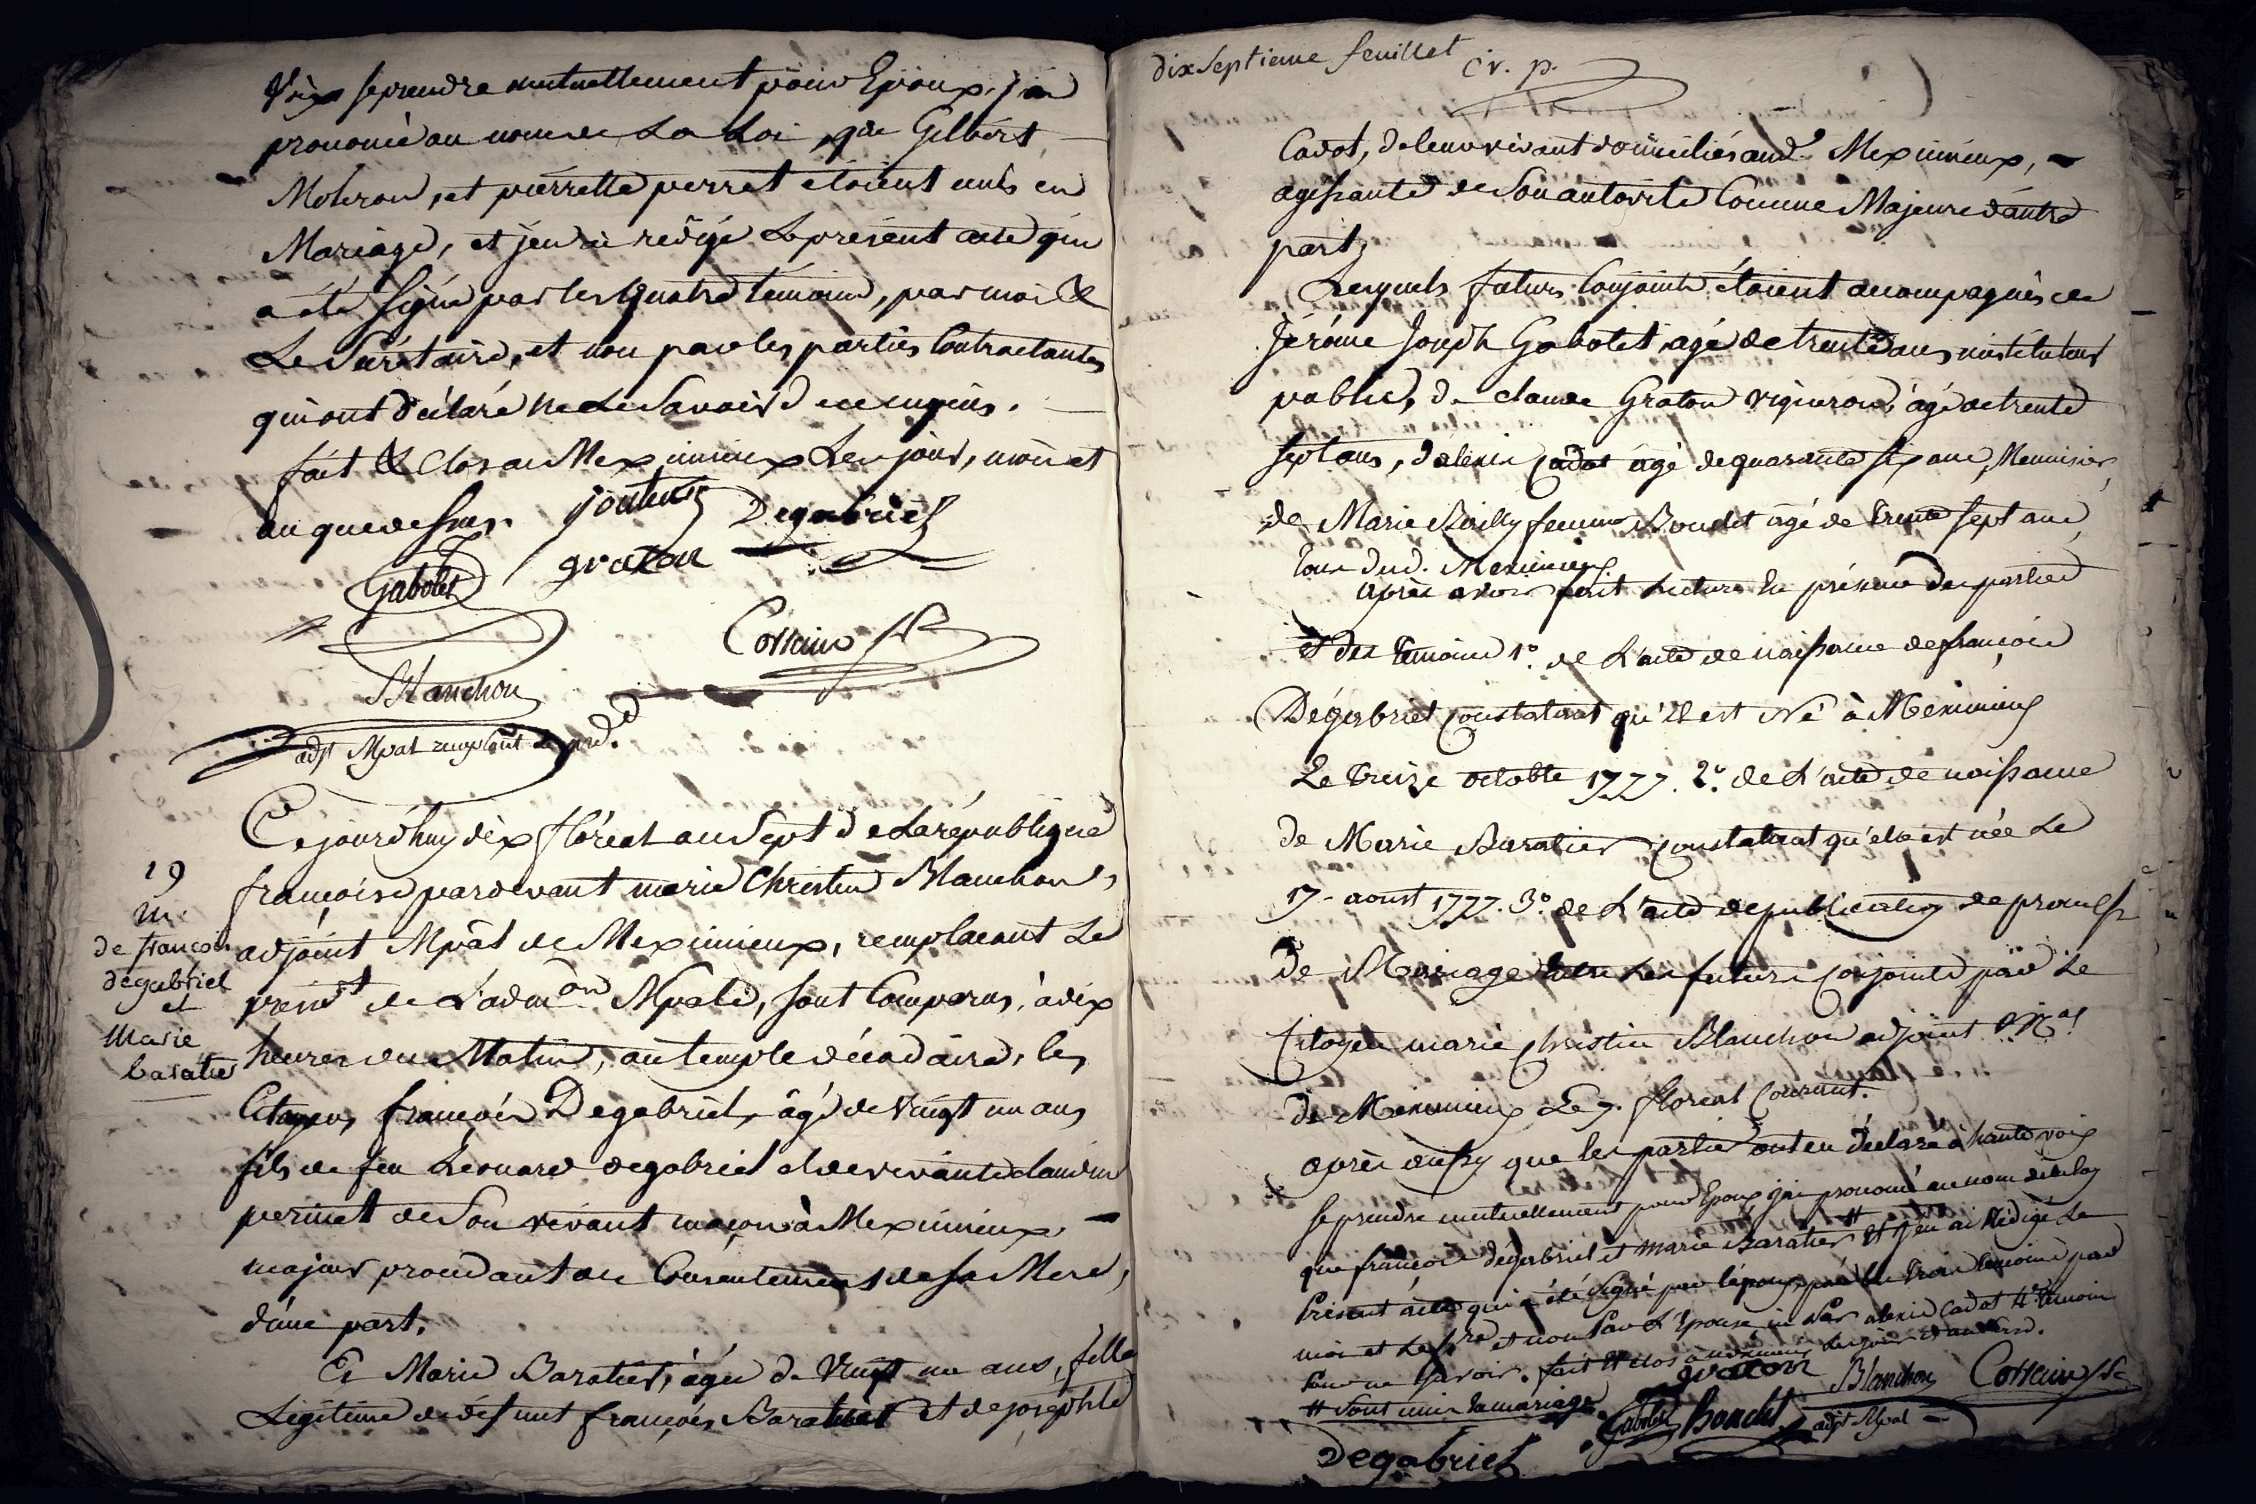 Voix se prendre mutuellement pour Epoux, j'ai
prononcé au nom de La Loi, que Gilbert
et pierrette perret étoient unis en
Mariage, et j'en ai rédigé Le présent acte qui
a été signé par les quatre témoins, par moi &
Le Secrétaire, et non par les parties Contractantes
qui ont déclaré ne le Savoir de ce enquis.
fait & Clos au Meximieux Les jour, mois et
an que dessus.
Degabriel
graton
Gabolet
Cottain
Blanchon
adjt Mpal remplaçant Le prd.
Ce jourd'huy dix floréal an Sept de La république
françoise pardevant marie Christin Blanchon,
adjoint Mpal de Meximieux, remplacant Le
presidt de L'admon Mpale, sont Comparus, à dix
heures du Matin, au temple décadaire, les
Citoyens françois Degabriel, âgé de vingt un ans
fils de feu Léonard degabriel et de vivante claudine
perinet de Son vivant maçon à Meximieux,
majeur procédant du Consentement de sa Mere,
d'une part.
Et Marie Baratier, âgée de Vingt un ans, fille
Légitime de défunt françois Baratier et de josephte
19
m.
de françois
degabriel
et
Marie
baratier
dix Septieme feuillet
Cadot, de leur vivant domiciliés aud. Meximieux,
agissante de Son autorité Comme Majeure d'autre
part;
Lesquels futurs Conjoints étoient accompagnés de
Jérôme Joseph Gabolet âgé de trente ans instituteur
public, de claude Graton vigneron, âgé de trente
sept ans, d'alexis Cadot âgé de quarante six ans, Menuisier,
de Marie Bailly femme Boudet âgé de trente sept ans,
tous dud. Meximieux
après avoir fait Lecture en présence des parties
et des témoins 1º. de L'acte de naissance de françois
Dégabriel Constatant qu'il est Né à Meximieux
Le treize octobre 1777. 2º. de L'acte de naissance
de Marie Baratier Constatant qu'elle est née Le
17 aoust 1777. 3º. de L'acte de publication de promesse
de Mariage entre Les futurs Conjoints par Le
Citoyen marie christin Blanchon adjoint Mal
de Meximieux Le 7. floréal Courant.
après aussy que les parties ont eu déclaré à haute voix
se prendre mutuellement pour Epoux, j'ai prononcé au nom de la loy
que françois dégabriel et marie Baratier # Et j'en ai Rédigé Le
Présent acte qui a été signé par l'époux, par les trois témoins par
moi et Le Sre et non Par L'épouse ni Par alexis Cadot 4e témoin
pour ne Savoir. fait & clos à Meximieux Les jour et an
# Sont unis en mariage
graton
Blanchon
Cottain Sre
Gabolet
Boudet
adjt Mpal
Degabriel